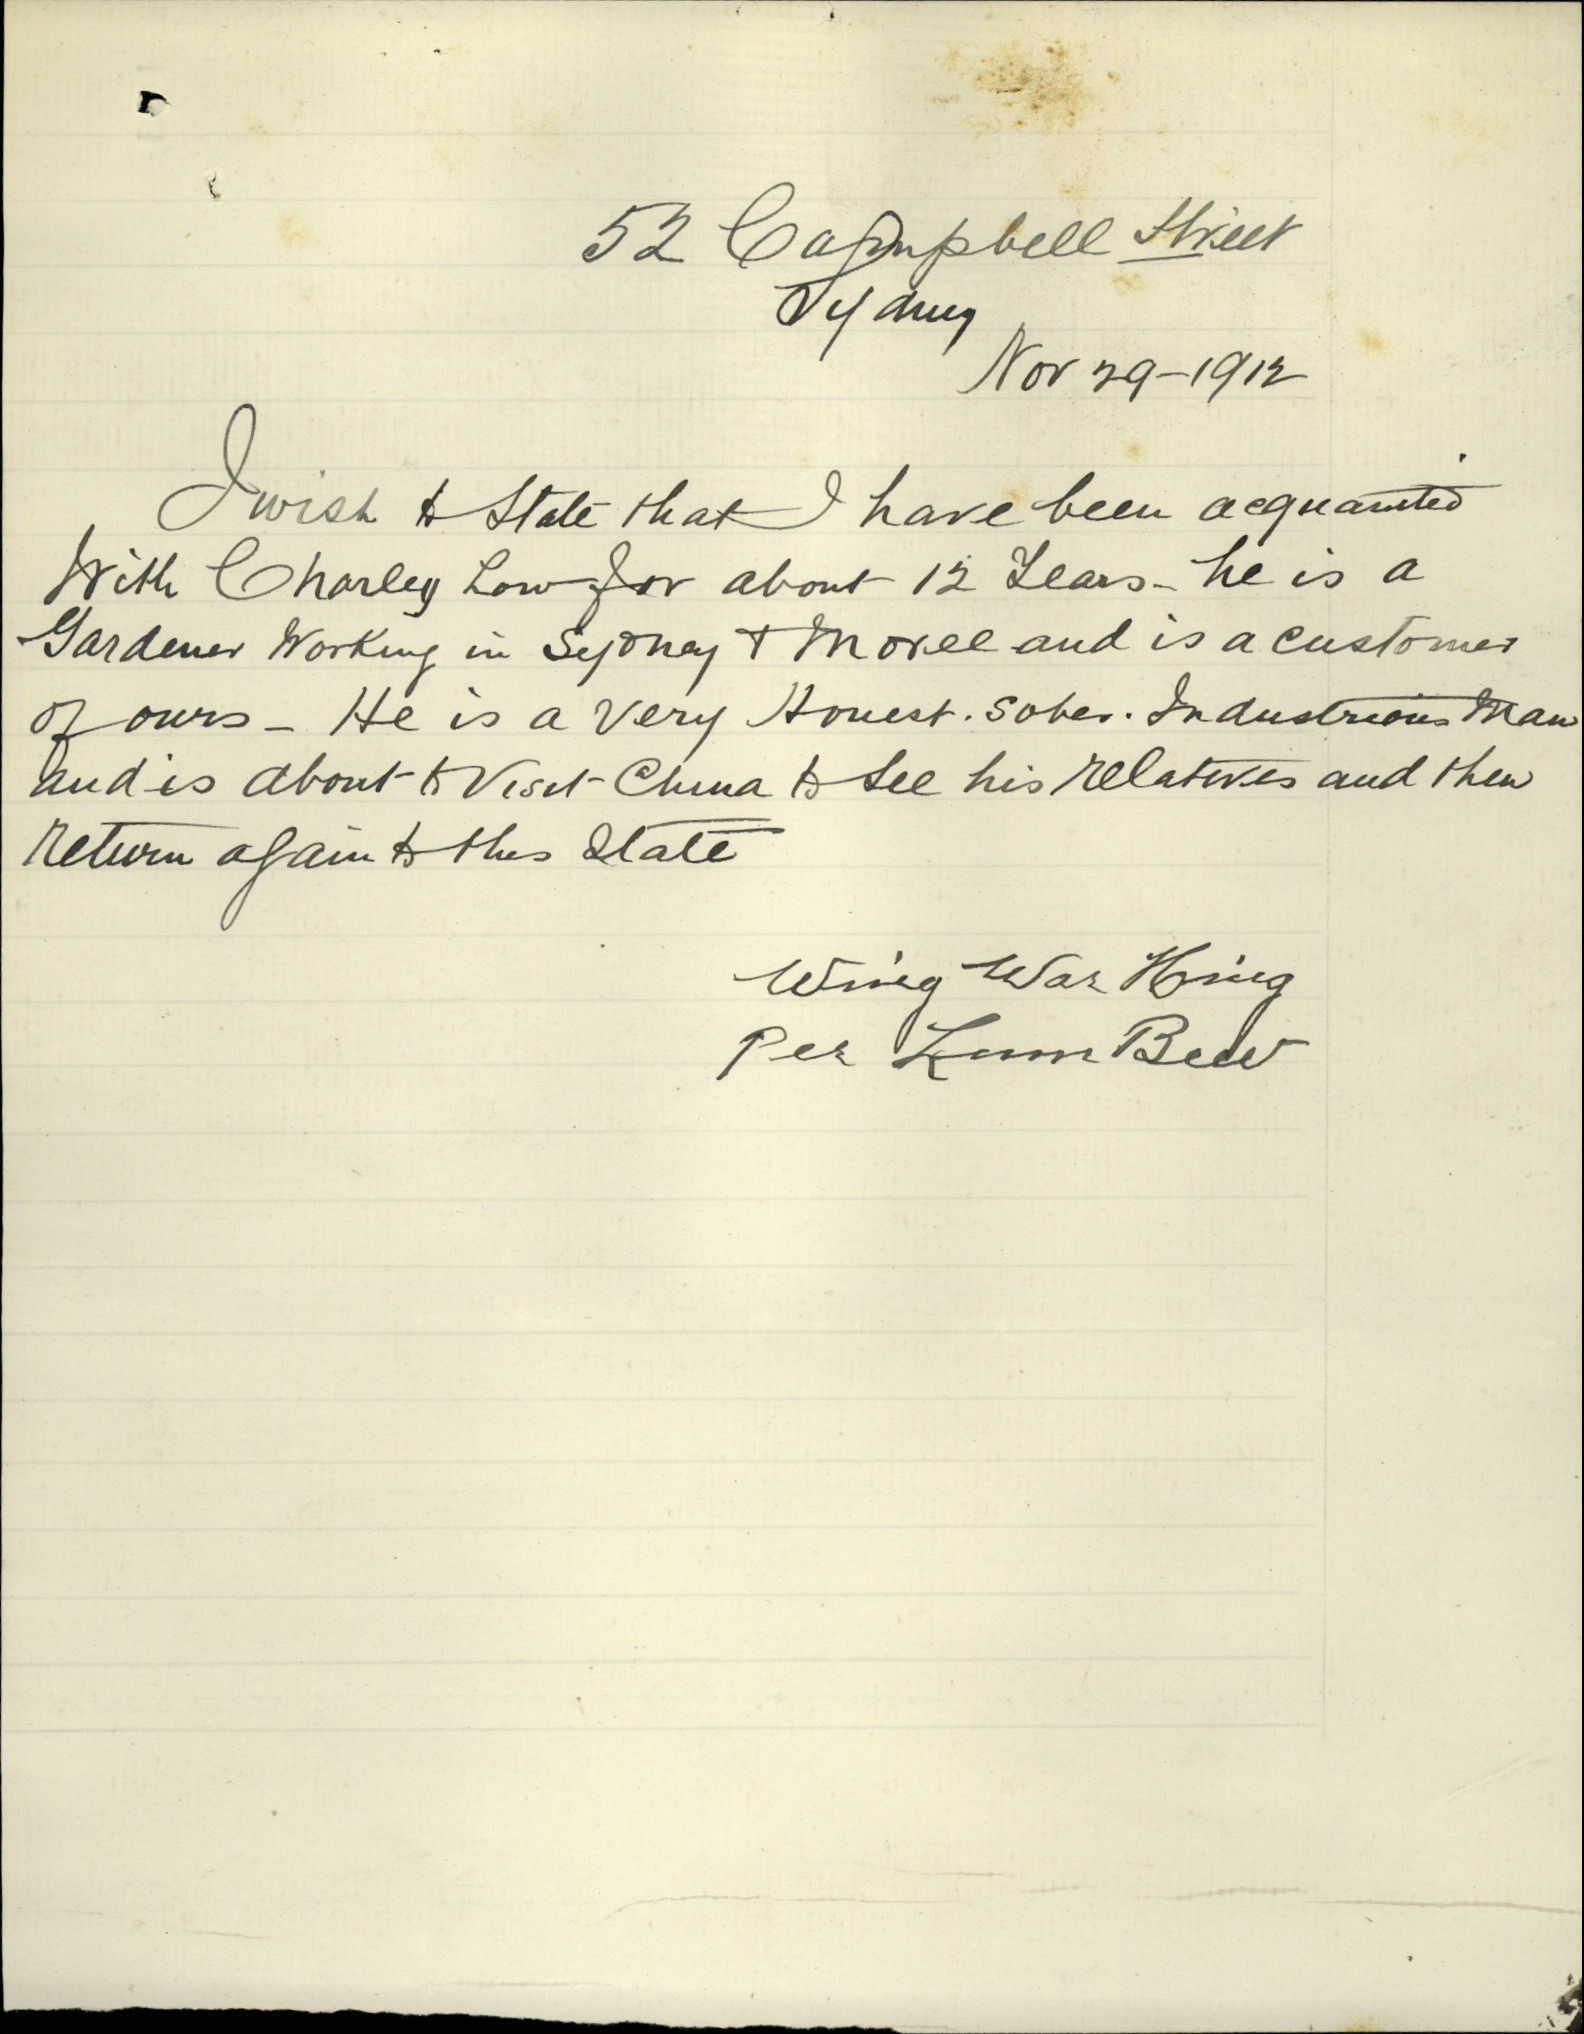 52 Campbell Street
Sydney
Nov 29-1912
I wish to State that I have been acquainted
With Charley Low for about 12 Years - he is a
Gardener Working in Sydney & Moree and is a customer
of ours - He is a Very Honest. Sober. Industrious Man
and is about to Visit China to See his relatives and then
return again to this State
Wing War Hing
Per Lumm Bew